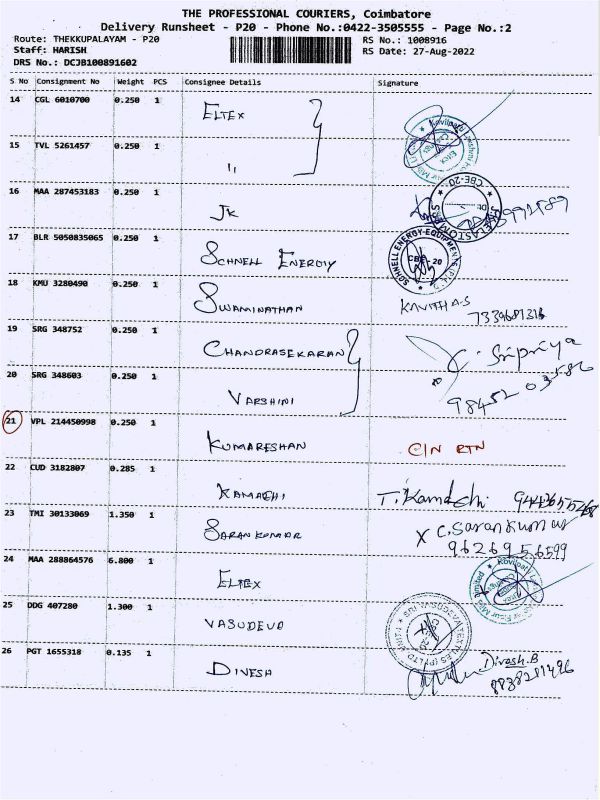 THE PROFESSIONAL COURIERS, Coimbatore
Delivery Runsheet - P20 - Phone No.:0422-3505555 - Page No.:2
Route: THEKKUPALAYAM - P20 RS No.: 1008916
Staff: HARISH RS Date: 27-Aug-2022
DRS No.: DCJB100891602
S No Consignment No Weight PCS Consignee Details Signature
14 CGL 6010700 0.250 1 ELTEX
15 TVL 5261457 0.250 1 "
16 MAA 287453183 0.250 1 JK
17 BLR 5050835065 0.250 1 SCHNELL ENERGIY
SCHNELL ENERGY EQUIPMENTS CBE-20
18 KMU 3280490 0.250 1 SWAMINATHAN KAVITHA.S
7339681316
19 SRG 348752 0.250 1 CHANDRASEKARAN C. Sripriya
20 SRG 348603 0.250 1 VARSHINI 98452 03586
21 VPL 214450998 0.250 1 KUMARESHAN C/N RTN
22 CUD 3182807 0.285 1 KAMACHI T. Kamachi
23 TMI 30133069 1.350 1 SARAN KUMAR X C. Saran Kumar
9626956599
24 MAA 288864576 6.800 1 ELTEX
25 DDG 407280 1.300 1 VASUDEVD
26 PGT 1655318 0.135 1 DINESH Dinesh.B
8838281496